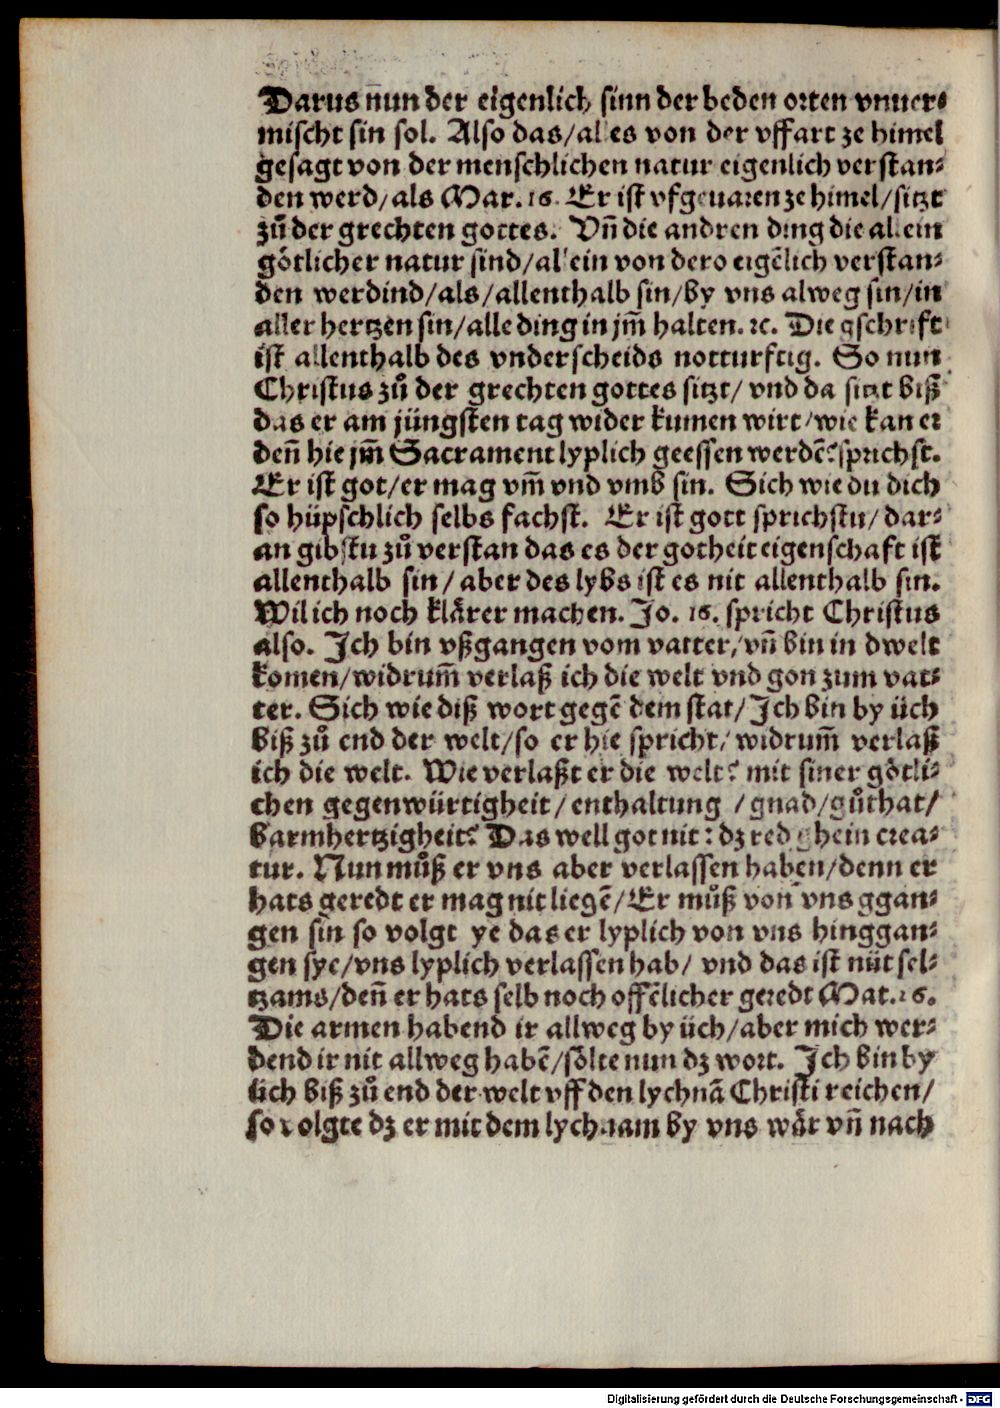 Darus nun der eigenlich sinn der beden orten vnuer⸗
mischt sin sol. Also das/alles von der vffart ze himel
gesagt von der menschlichen natur eigenlich verstan⸗
den werd/als Mar. 16. Er ist vfgeuaren ze himel/sitzt
zů der grechten gottes. Vnd̄ die andren ding die allein
götlicher natur sind/allein von dero eigēlich verstan⸗
den werdind/als/allenthalb sin/by vns alweg sin/in
aller hertzen sin/alle ding in jm̄ halten. ꝛc. Die gschrift
ist allenthalb des vnderscheids notturftig. So nun
Christus zů der grechten gottes sitzt/ vnd da sitzt biß
das er am jüngsten tag wider kumen wirt/wie kan er
den̄ hie jm̄ Sacrament lyplich geessen werdē? sprichst.
Er ist got/er mag vm̄ vnd vmb sin. Sich wie du dich
so hüpschlich selbs fachst. Er ist gott sprichstu/ dar⸗
an gibstu zů verstan das es der gotheit eigenschaft ist
allenthalb sin/ aber des lybs ist es nit allenthalb sin.
Wil ich noch klårer machen. Jo. 16. spricht Christus
also. Ich bin vßgangen vom vatter/vn̄ bin in dwelt
komen/widrum̄ verlaß ich die welt vnd gon zum vat⸗
ter. Sich wie diß wort gegē dem stat/ Ich bin by üch
biß zů end der welt/so er hie spricht/ widrum̄ verlaß
ich die welt. Wie verlaßt er die welt? mit siner götli⸗
chen gegenwürtigheit/enthaltung /gnad/gůthat/
barmhertzigheit? Das well got nit: dz red ghein crea⸗
tur. Nun můß er vns aber verlassen haben/denn er
hats geredt er mag nit liegē/Er můß von vns ggan⸗
gen sin so volgt ye das er lyplich von vns hinggan⸗
gen sye/vns lyplich verlassen hab/ vnd das ist nüt sel⸗
tzams/den̄ er hats selb noch offēlicher geredt Mat. 26.
Die armen habend ir allweg by üch/aber mich wer⸗
dend ir nit allweg habē/sölte nun dz wort. Ich bin by
üch biß zů end der welt vff den lychnā Christi reichen/
so volgte dz er mit dem lychnam by vns wår vn̄ nach
Digitalisierung gefördert durch die Deutsche Forschungsgemeinschaft - DFG